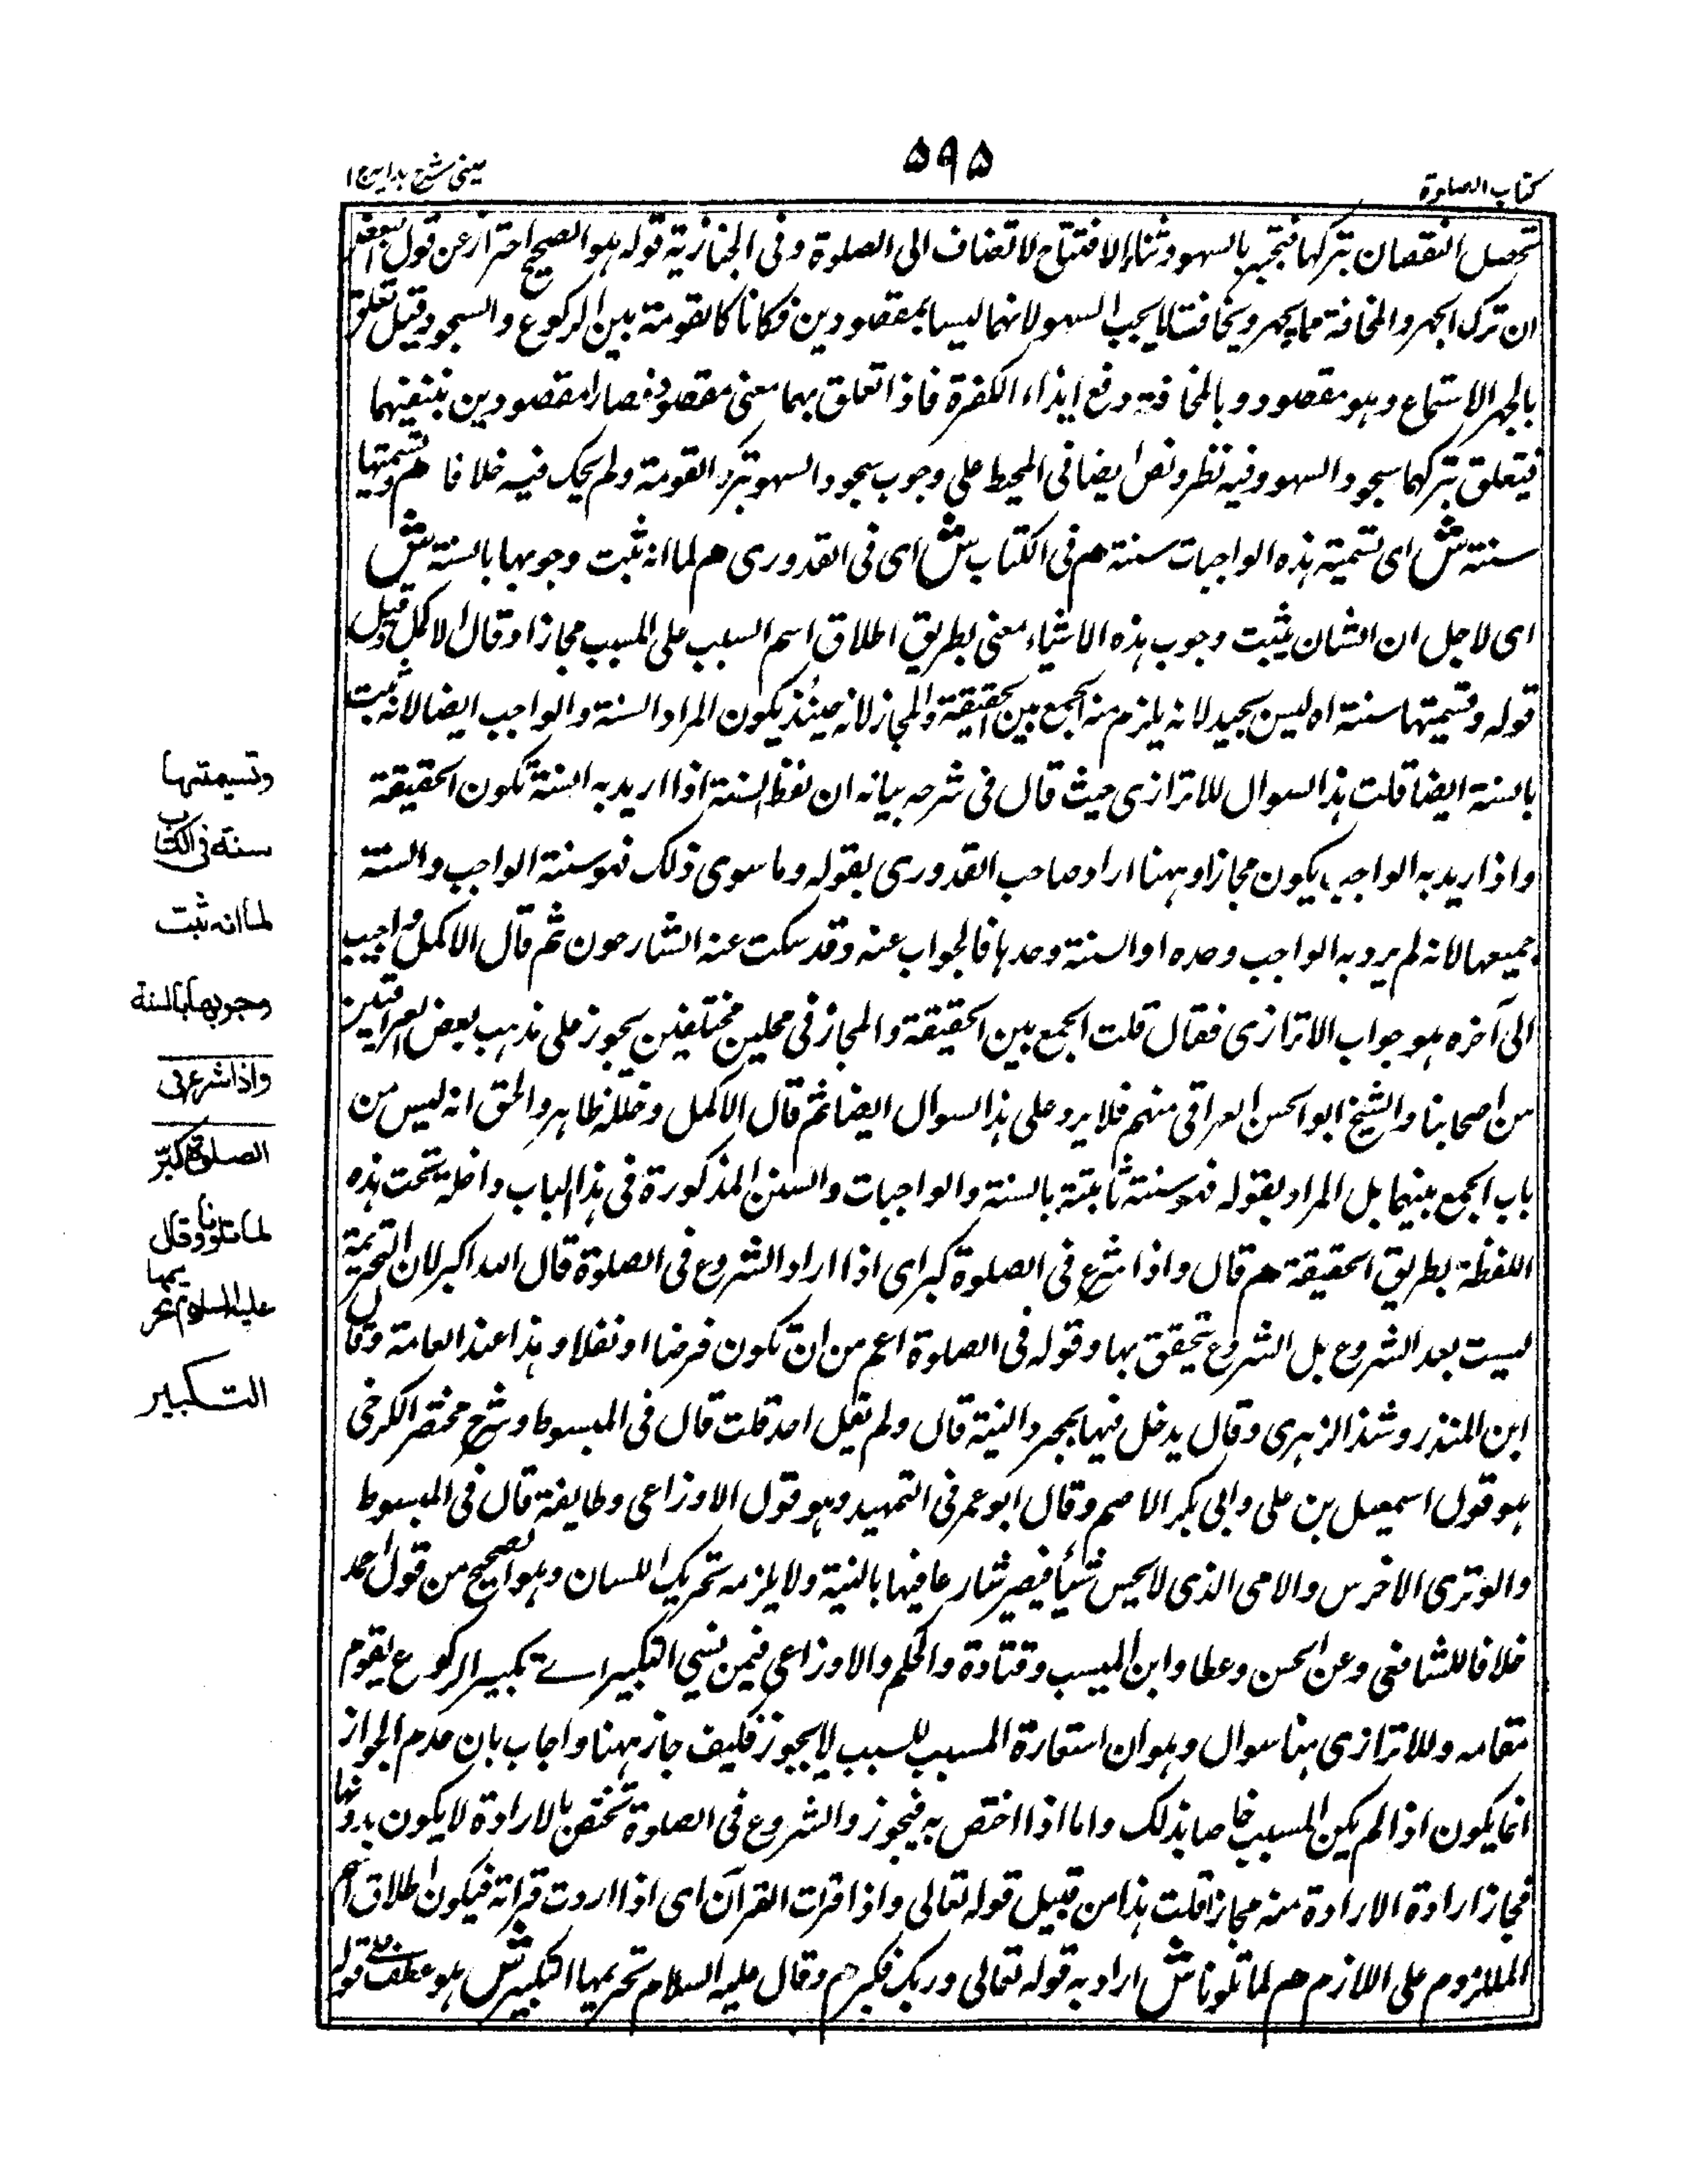 كتاب الصلوة
٥٩٥
عينى شرح هداية ج ١
تحصل النقصان بتركها فتجبر بالسهو وثناء الافتتاح لا تضاف الى الصلوة وفى الخبازية قوله هو الصحيح احتراز عن قول بعضهم
ان ترك الجهر والمخافتة فيما يجهر ويخافت لا يجب السهو لانهما ليسا بمقصودين فكانا كالقومة بين الركوع والسجود وقيل تعلق
بالجهر الاستماع وهو مقصود وبالمخافتة دفع ايذاء الكفرة فاذا تعلق بهما معنى مقصود فصارا مقصودين بنفيهما
فيتعلق بتركهما سجود السهو وفيه نظر ونص ايضا فى المحيط على وجوب سجود السهو بترك القومة ولم يحك فيه خلافا هم وتسميتها
سنة ش اى تسمية هذه الواجبات سنة هم فى الكتاب ش اى فى القدورى هم لما انه ثبت وجوبها بالسنة ش
اى لاجل ان الشان يثبت وجوب هذه الاشياء معنى بطريق اطلاق اسم السبب على المسبب مجازا وقال الاكمل وقيل
قوله وتسميتها سنة اه ليس بجيد لانه يلزم منه الجمع بين الحقيقة والمجاز لانه حينئذ يكون المراد السنة والواجب ايضا لانه ثبت
بالسنة ايضا قلت هذا السوال للاترازى حيث قال فى شرحه بيانه ان لفظ السنة اذا اريد به السنة تكون الحقيقة
واذا اريد به الواجب يكون مجازا وههنا اراد صاحب القدورى بقوله وما سوى ذلك فهو سنة الواجب والسنة
جميعها لانه لم يرد به الواجب وحده او السنة وحدها فالجواب عنه وقد سكت عنه الشارحون ثم قال الاكمل واجيب
الى آخره هو جواب الاترازى فقال قلت الجمع بين الحقيقة والمجاز فى محلين مختلفين يجوز على مذهب بعض العراقيين
من اصحابنا والشيخ ابو الحسن العراقى منهم فلا يرد على هذا السوال ايضا ثم قال الاكمل وخلله ظاهر والحق انه ليس من
باب الجمع بينهما بل المراد بقوله فهو سنة ثابتة بالسنة والواجبات والسنن المذكورة فى هذا الباب داخلة تحت هذه
اللفظة بطريق الحقيقة هم قال واذا شرع فى الصلوة كبر اى اذا اراد الشروع فى الصلوة قال الله اكبر لان التحريمة
ليست بعد الشروع بل الشروع يتحقق بها وقوله فى الصلوة اعم من ان تكون فرضا او نفلا وهذا عند العامة وقال
ابن المنذر وشذ الزهرى وقال يدخل فيها بمجرد النية قال ولم يقل احد قلت قال فى المبسوط وشرح مختصر الكرخى
هو قول اسمعيل بن على وابى بكر الاصم وقال ابو عمر فى التمهيد وهو قول الاوزاعى وطايفة قال فى المبسوط
والوترى الاخرس والامى الذى لا يحسن شيأ فيصير شارعا فيها بالنية ولا يلزمه تحريك اللسان وهو الصحيح من قول احمد
خلافا للشافعى وعن الحسن وعطا وابن المسيب وقتادة والحكم والاوزاعى فيمن نسى التكبير اے تكبير الركوع يقوم
مقامه وللاترازى هنا سوال وهو ان استعارة المسبب للسبب لا يجوز فكيف جاز ههنا واجاب بان عدم الجواز
انما يكون اذا لم يكن المسبب خاصا بذلك واما اذا اختص به فيجوز والشروع فى الصلوة تختص بالارادة لا يكون بدونها
فجاز ارادة الارادة منه مجازا قلت هذا من قبيل قوله تعالى واذا قرات القرآن اى اذا اردت قراته فيكون اطلاق اسم
الملزوم على اللازم هم لما تلونا ش اراد به قوله تعالى وربك فكبر م وقال عليه السلام تحريمها التكبير ش هو عطف على قوله
وتسميتها
سنة فى الكتاب
لما انه ثبت
وجوبها بالسنة
واذا شرع فى
الصلوة كبر
لما تلونا وقال
عليه السلام تحريمها
التكبير